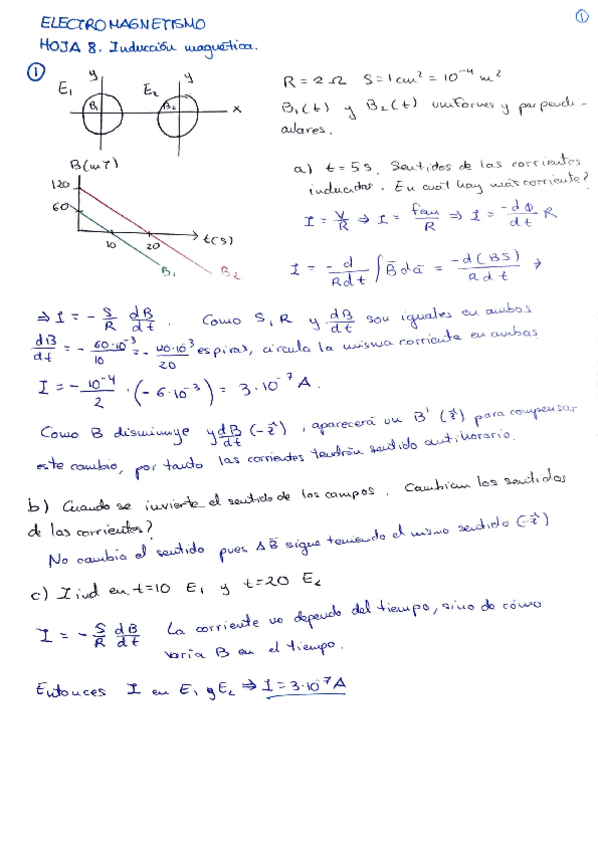 ①
ELECTROMAGNETISMO
HOJA 8. Inducción magnética.
①
E₁ y B₁
E₂ y B₂ x
R = 2 Ω S = 1 cm² = 10⁻⁴ m²
B₁(t) y B₂(t) uniformes y perpendi-
culares.
B(mT)
120
60
10 20 t(s)
B₁ B₂
a) t = 5 s. Sentidos de las corrientes
inducidas. En cuál hay más corriente?
I = V/R ⇒ I = fem/R ⇒ I = -dΦ/dt R
I = -d/Rdt ∫B̄dā = -d(BS)/Rdt →
⇒ I = - S/R dB/dt . Como S, R y dB/dt son iguales en ambos
dB/dt = - 60·10⁻³/10 = - 120·10⁻³/20 espiras, circula la misma corriente en ambas.
I = - 10⁻⁴/2 · (-6·10⁻³) = 3·10⁻⁷ A.
Como B disminuye y dB/dt (-ẑ), aparecerá un B' (ẑ) para compensar
este cambio, por tanto las corrientes tendrán sentido antihorario.
b) Cuando se invierte el sentido de los campos. Cambian los sentidos
de las corrientes?
No cambia el sentido pues ΔB̄ sigue teniendo el mismo sentido (-ẑ)
c) I ind en t=10 E₁ y t=20 E₂
I = - S/R dB/dt La corriente no depende del tiempo, sino de cómo
varía B en el tiempo.
Entonces I en E₁ y E₂ ⇒ I = 3·10⁻⁷ A